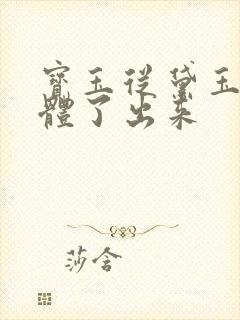 寶玉從黛玉
體了出來
莎含